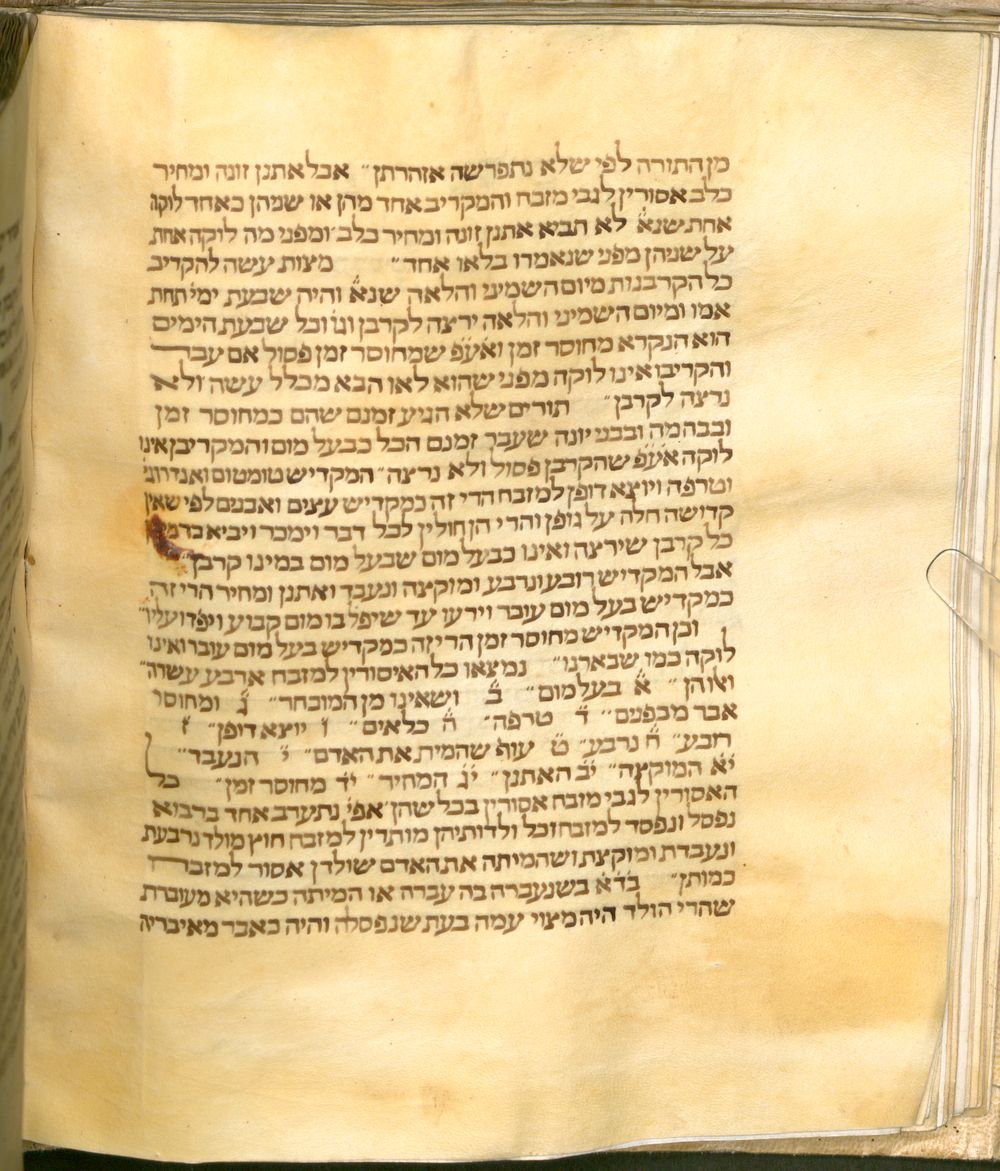 מן התורה לפי שלא נתפרשה אזהרתן״ אבל אתנן זונה ומחיר
כלב אסורין לגבי מזבח והמקריב אחד מהן או שניהן כאחד לוקה
אחת שנא׳ לא תביא אתנן זונה ומחיר כלב ומפני מה לוקה אחת
על שניהן מפני שנאמרו בלאו אחד״ מצות עשה להקריב
כל הקרבנות מיום השמיני והלאה שנא׳ והיה שבעת ימי׳ תחת
אמו ומיום השמיני והלאה ירצה לקרבן וגו׳ וכל שבעת הימים
הוא הנקרא מחוסר זמן ואע״פ שמחוסר זמן פסול אם עבר
והקריבו אינו לוקה מפני שהוא לאו הבא מכלל עשה ולא
נרצה לקרבן״ תורים שלא הגיע זמנם שהם כמחוסר זמן
ובבהמה ובבני יונה שעבר זמנם הכל כבעל מום והמקריבן אינו
לוקה אע״פ שהקרבן פסול ולא נרצה״ המקדיש טומטום ואנדרוגי׳
וטרפה ויוצא דופן למזבח הרי זה כמקדיש עצים ואבנים לפי שאין
קדושה חלה על גופן והרי הן חולין לכל דבר וימכר ויביא בדמיו
כל קרבן שירצה ואינו כבעל מום שבעל מום במינו קרבן״
אבל המקדיש רובע ונרבע ומוקצה ונעבד ואתנן ומחיר הרי זה
כמקדיש בעל מום עובר וירעו עד שיפל בו מום קבוע ויפדו עליו״
וכן המקדיש מחוסר זמן הרי זה כמקדיש בעל מום עובר ואינו
לוקה כמו שבארנו״ נמצאו כל האיסורין למזבח ארבע עשרה״
ואלו הן״ א בעל מום״ ב ושאינו מן המובחר״ ג ומחוסר
אבר מבפנים״ ד טרפה״ ה כלאים״ ו יוצא דופן״ ז
רובע״ ח נרבע״ ט עוף שהמית את האדם״ י הנעבד״
יא המוקצה״ יב האתנן״ יג המחיר״ יד מחוסר זמן״ כל
האסורין לגבי מזבח אסורין בכל שהן אפי׳ נתערב אחד ברבוא
נפסל ונפסד למזבח וכל ולדותיהן מותרין למזבח חוץ מולד נרבעת
ונעבדת ומוקצת ושהמיתה את האדם שולדן אסור למזבח
כמותן״ בד״א בשנעברה בה עברה או המיתה כשהיא מעוברת
שהרי הולד היה מצוי עמה בעת שנפסלה והיה כאבר מאיבריה